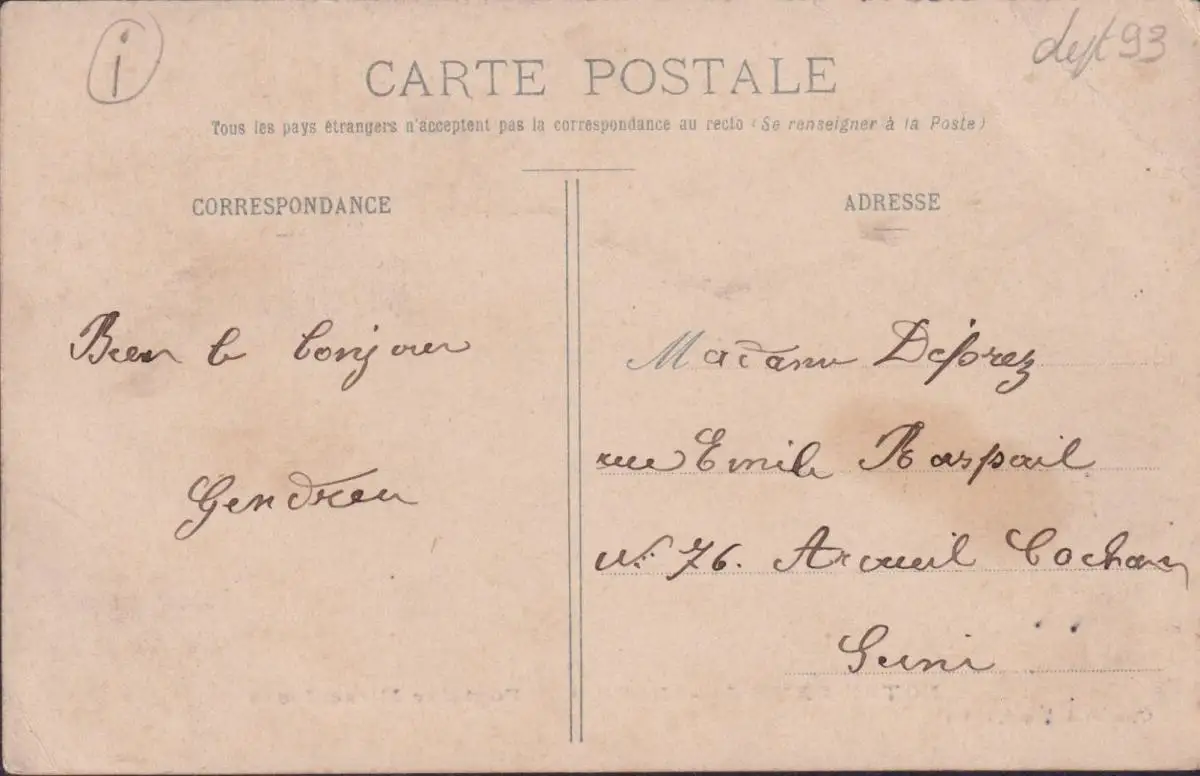 i
dept 93
CARTE POSTALE
Tous les pays étrangers n'acceptent pas la correspondance au recto (Se renseigner à la Poste)
CORRESPONDANCE
ADRESSE
Bien le bonjour
Gendreu
Madame Déforez
rue Emile Raspail
N: 76. Arcueil Cachan
Seine